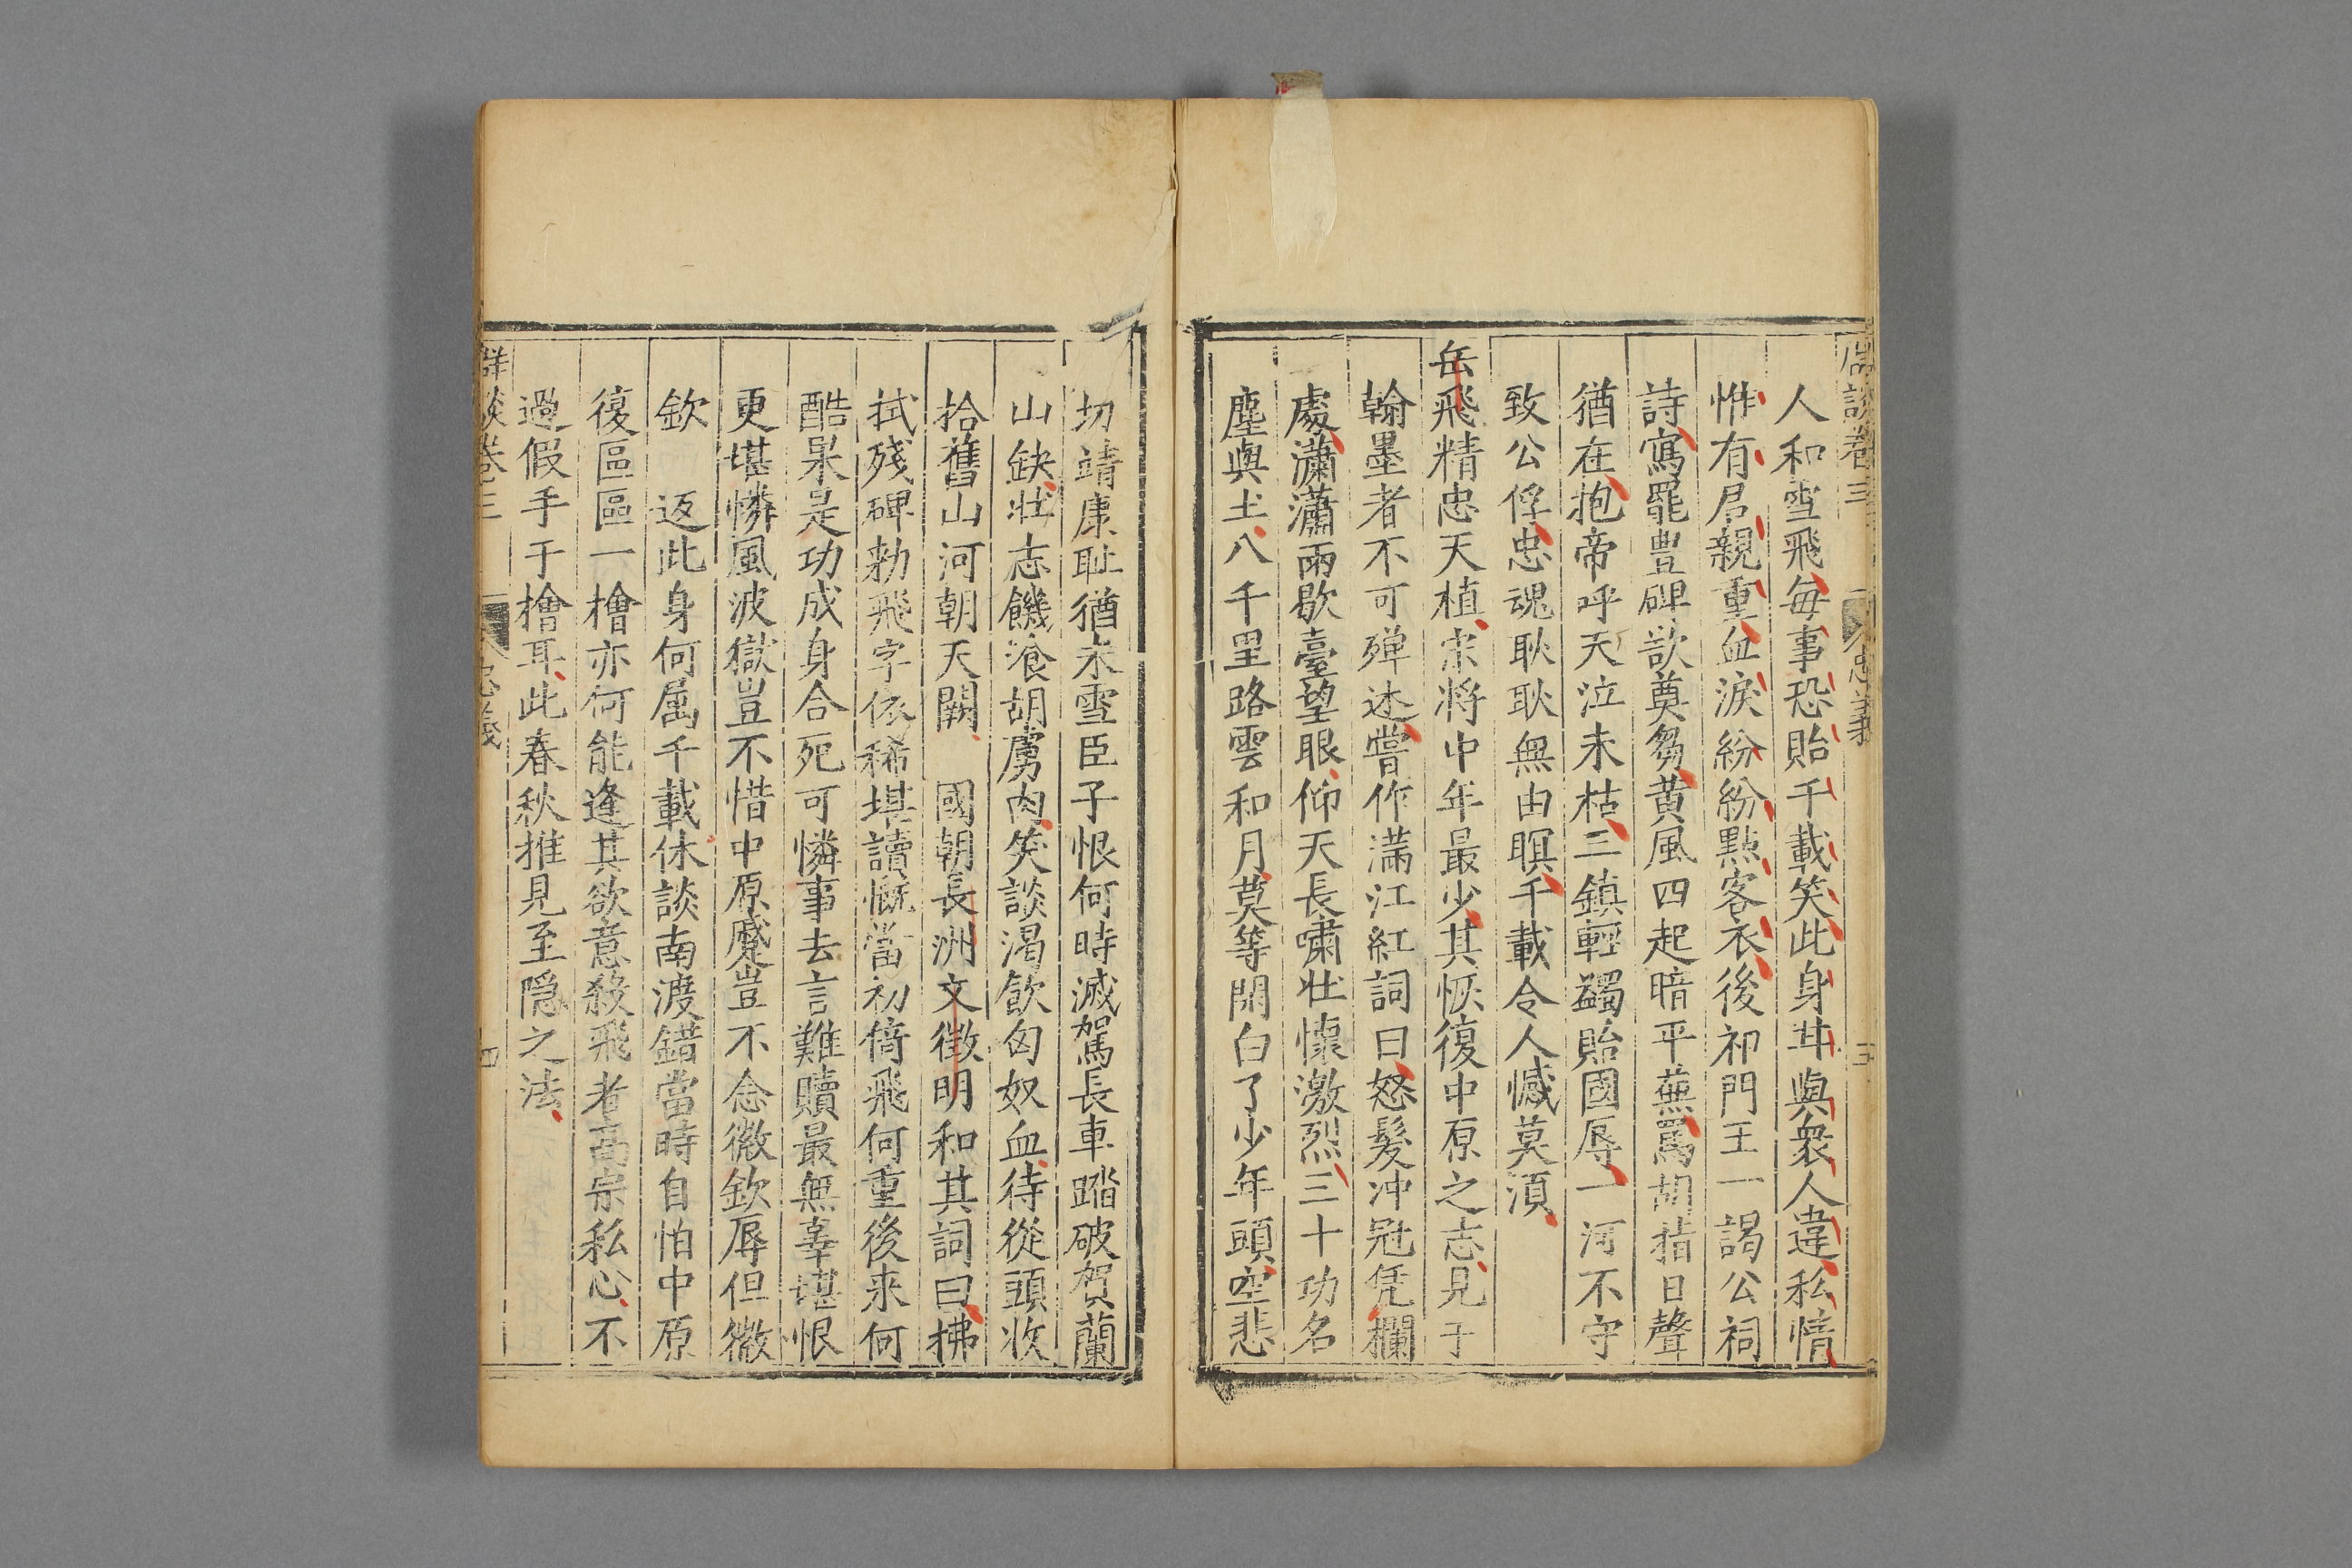 偶談卷三
忠義
三
人和雪飛每事恐貽千載笑此身甘與衆人違私情
惟有君親重血淚紛紛點客衣後祁門王一謁公祠
詩寫罷豊碑欲奠芻黄風四起暗平蕪罵胡指日聲
猶在抱帝呼天泣未枯三鎮輕蠲貽國辱一河不守
致公俘忠魂耿耿無由瞑千載令人憾莫湏
岳飛精忠天植宋將中年最少其恢復中原之志見于
翰墨者不可殫述嘗作滿江紅詞曰怒髮冲冠凭欄
處瀟瀟雨歇臺望眼仰天長嘯壯懷激烈三十功名
塵與土八千里路雲和月莫等閒白了少年頭空悲
切靖康耻猶未雪臣子恨何時滅駕長車踏破賀蘭
山缺壯志饑飡胡虜肉笑談渴飲匈奴血待從頭收
拾舊山河朝天闕 國朝長洲文徵明和其詞曰拂
拭殘碑勑飛字依稀堪讀慨當初倚飛何重後来何
酷杲是功成身合死可憐事去言難贖最無辜堪恨
更堪憐風波獄豈不惜中原蹙豈不念徽欽辱但徽
欽 返此身何属千載休談南渡錯當時自怕中原
復區區一檜亦何能逢其欲意殺飛者高宗私心不
過假手于檜耳此春秋推見至隐之法
群談卷三
忠義
四